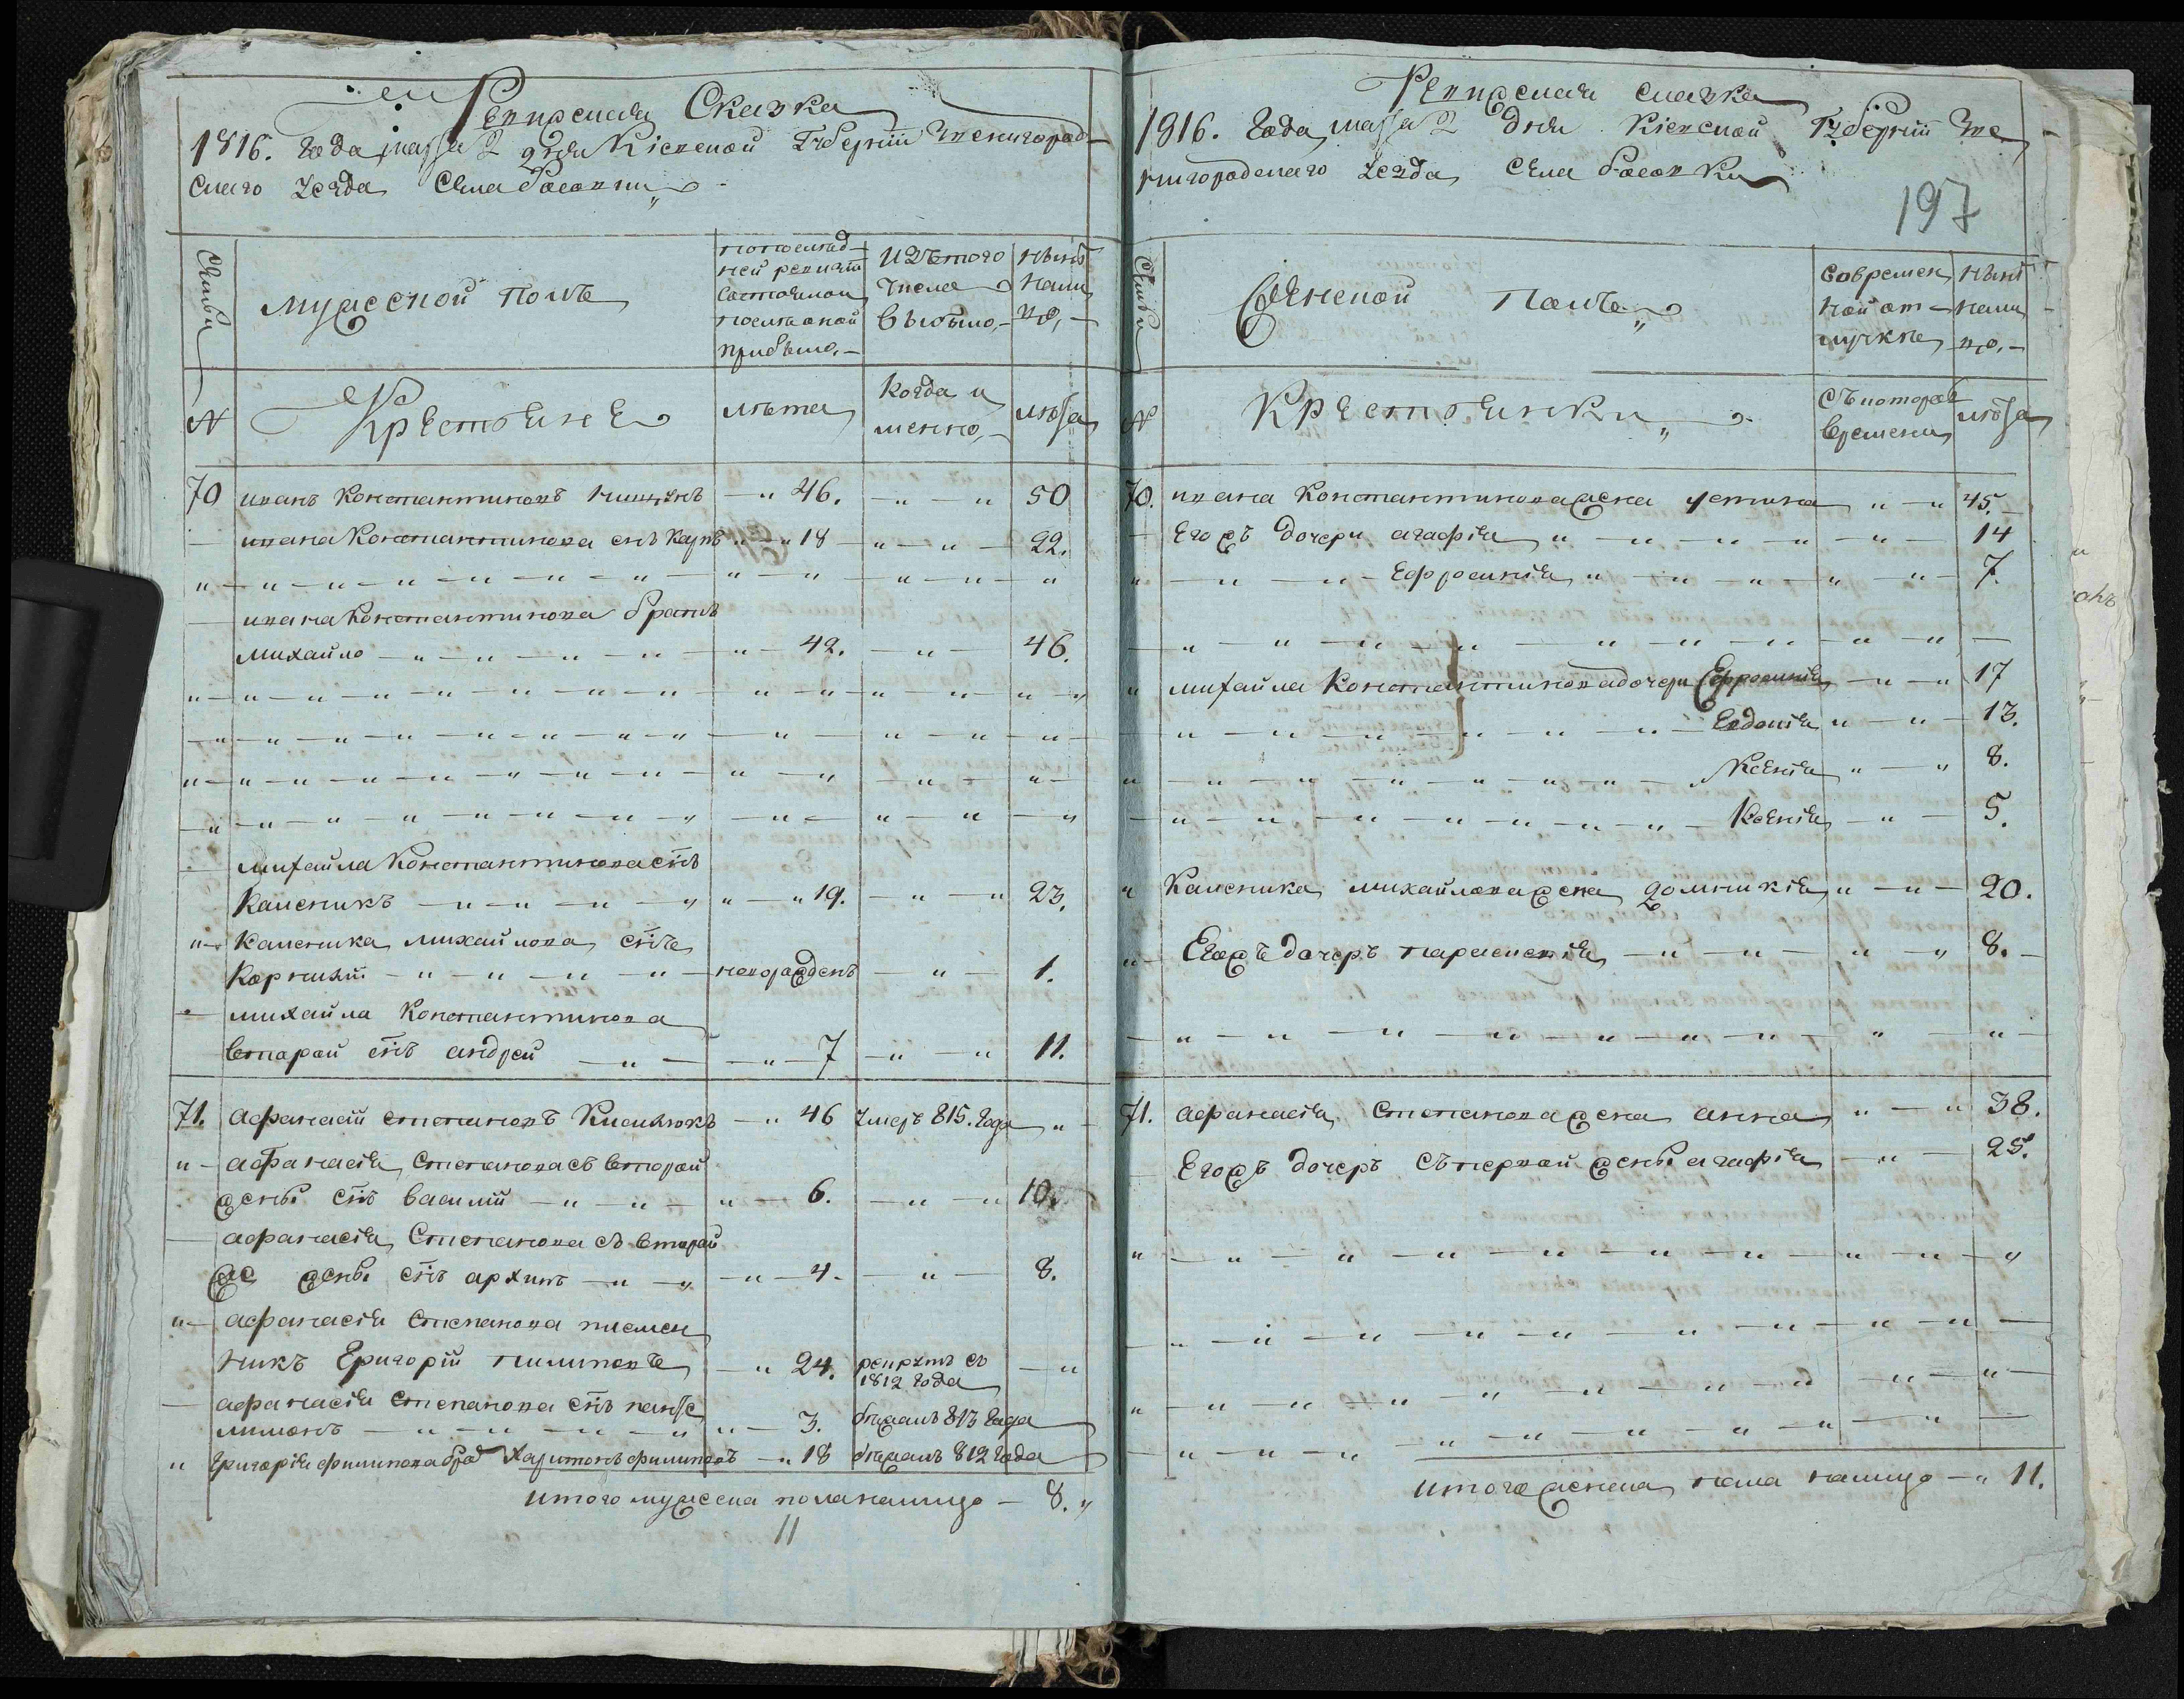 Ревизская Сказка
1816. Года марта 2 дня Кіевской Губерніи Звенигород-
скаго уезда села Росоховатки
Семьи
мужеской полъ
по послед-
ней ревизіи
состояло и
после оной
прибыло.
Изъ того
числа
выбыло.
Ныне
на ли
цо.
№
Крестьяне
лѣта
Когда и
менно,
лѣта
70 иванъ Константиновъ 46. 50
ивана Константинова снъ Карпъ 18 22.
ивана Константинова братъ
Михайло 42. 46.
михайла Константинова снъ
Каленикъ 19. 23.
Каленика михайлова снъ
Корнилій новорожденъ 1.
михайла Константинова
второй снъ андрей 7 11.
71. афанасій степановъ Киселюкъ 46 умеръ 815. Года
афанасія степанова съ второй
жены снъ василій 6. 10.
афанасія Степанова съ второй
же жены снъ архипъ 4. 8.
афанасія Степанова племен
никъ Григорій пилиповъ 24. рекрутъ съ
1812 года
афанасія Степанова снъ панте
лимонъ 3. бежалъ 813 Года
Григорія филипова брат Харитонъ филиповъ 18 бежалъ 812 Года
итого мужеска пола налицо 8.
11
Ревизская сказка
1816. Года марта 2 дня Кіевской Губерніи Зве
нигородскаго уезда села
197
Семьи
Женской полъ
Временн
ной от-
лучке
Ныне
на ли
цо.
№
Крестьянки
Съ которого
времени
лѣта
70. ивана Константинова жена устина 45.
Егожъ дочери агафія 14
Ефросинія 7.
михайла Константинова дочери Ефросинія 17
Евдокія 13.
Ксенія 8.
Ксенія 5.
Каленика михайлова жена домникія 20.
Егожъ дочеръ параскевія 8.
71. афанасія степанова жена анна 38.
Егожъ дочеръ съ первой жены агафія 25.
итого женска пола налицо 11.